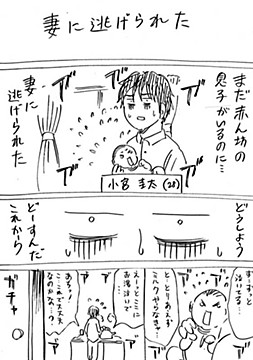 妻に逃げられた
まだ赤ん坊の
息子がいるのに…
妻に
逃げられた
小宮 圭太(28)
どうしよう
どーすんだ
これから
ずーずっと
泣いてる…
とーとりあえず
ミルクやらなきゃ…
えーっとここに
お湯注いで
あちっ!
ここれで大丈夫
なのかな…?
ガチャ